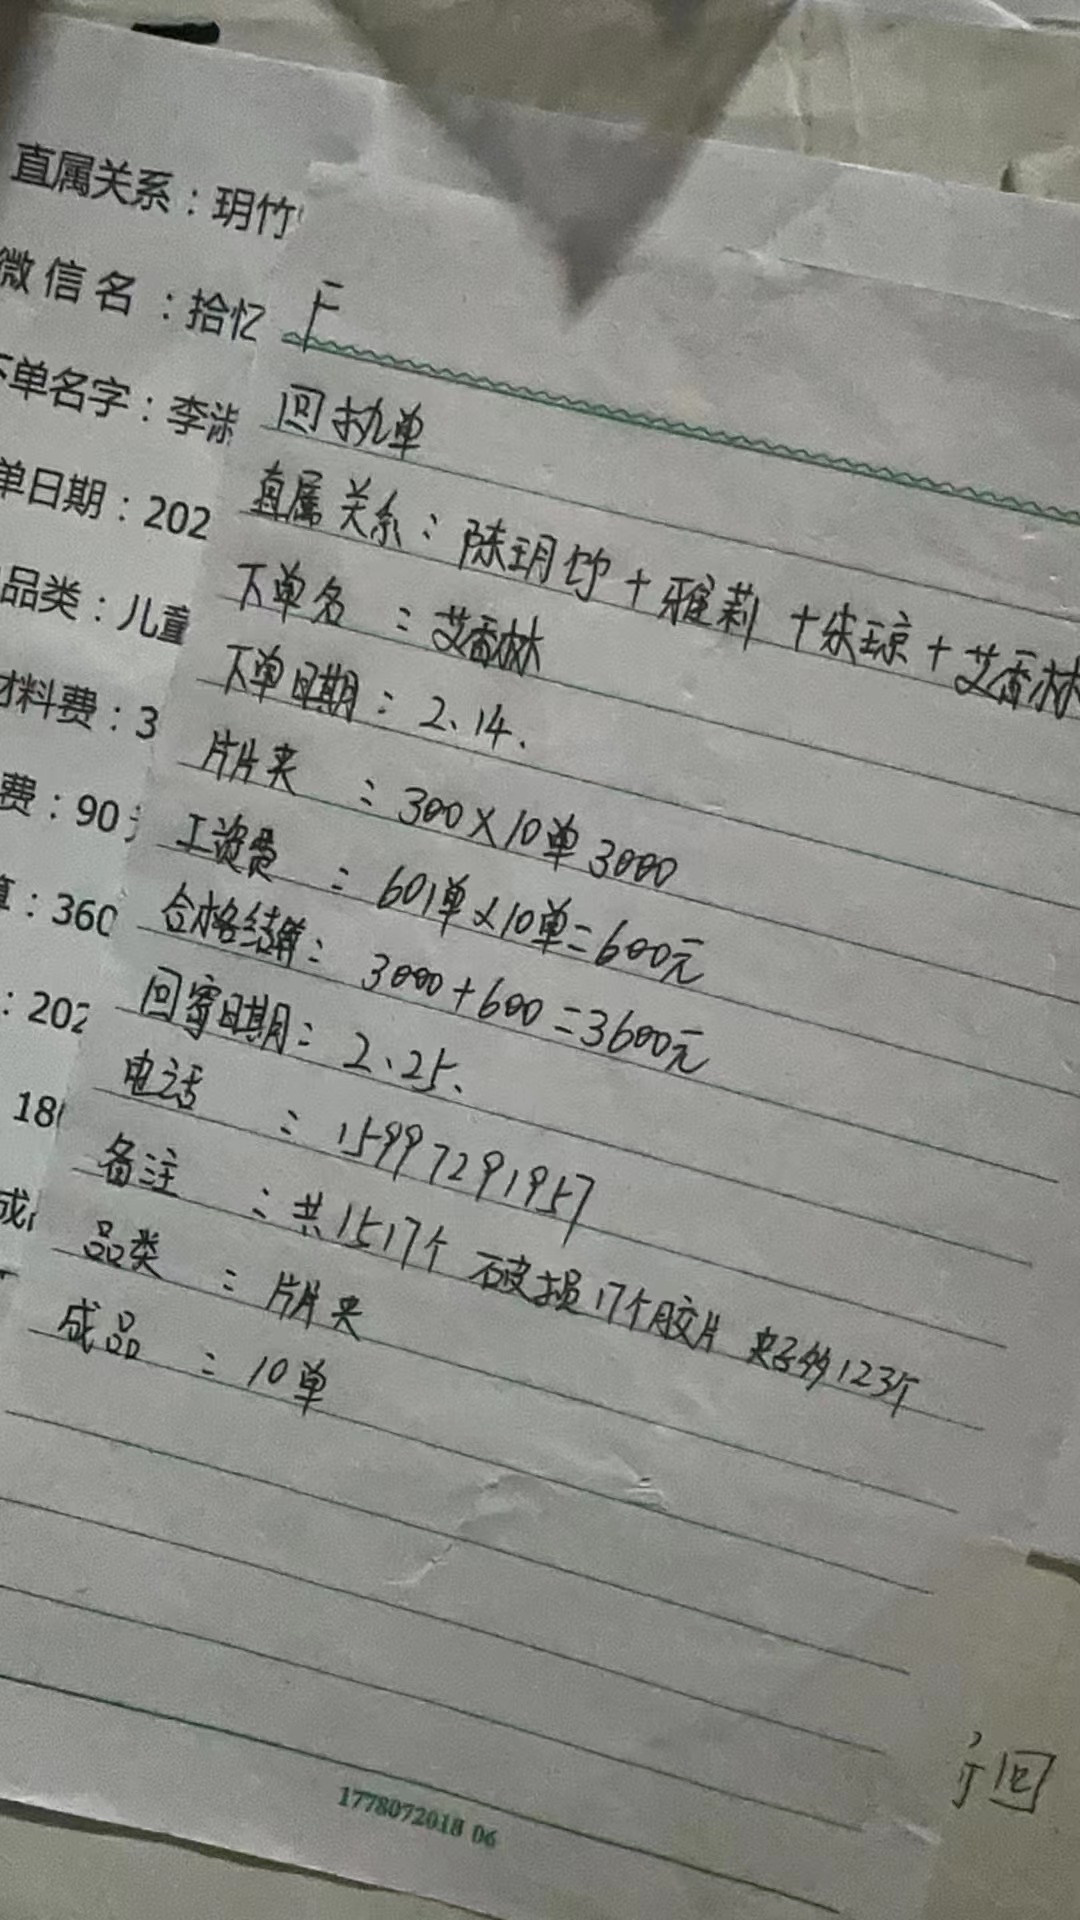 直属关系：玥竹
微信名：拾忆
下单名字：李
单日期：202
品类：儿童
材料费：3
费：90
算：360
：202
18
成
F
回执单
直属关系：陈玥竹+雅莉+朱琼+艾香林
下单名：艾香林
下单日期：2、14、
片片夹：300×10单3000
工资费：601单×10单=600元
合格结算：3000+600=3600元
回寄日期：2、25、
电话：15997291957
备注：共1517个 破损17个胶片 夹子多123个
品类：片片夹
成品：10单
1778072018 06
回